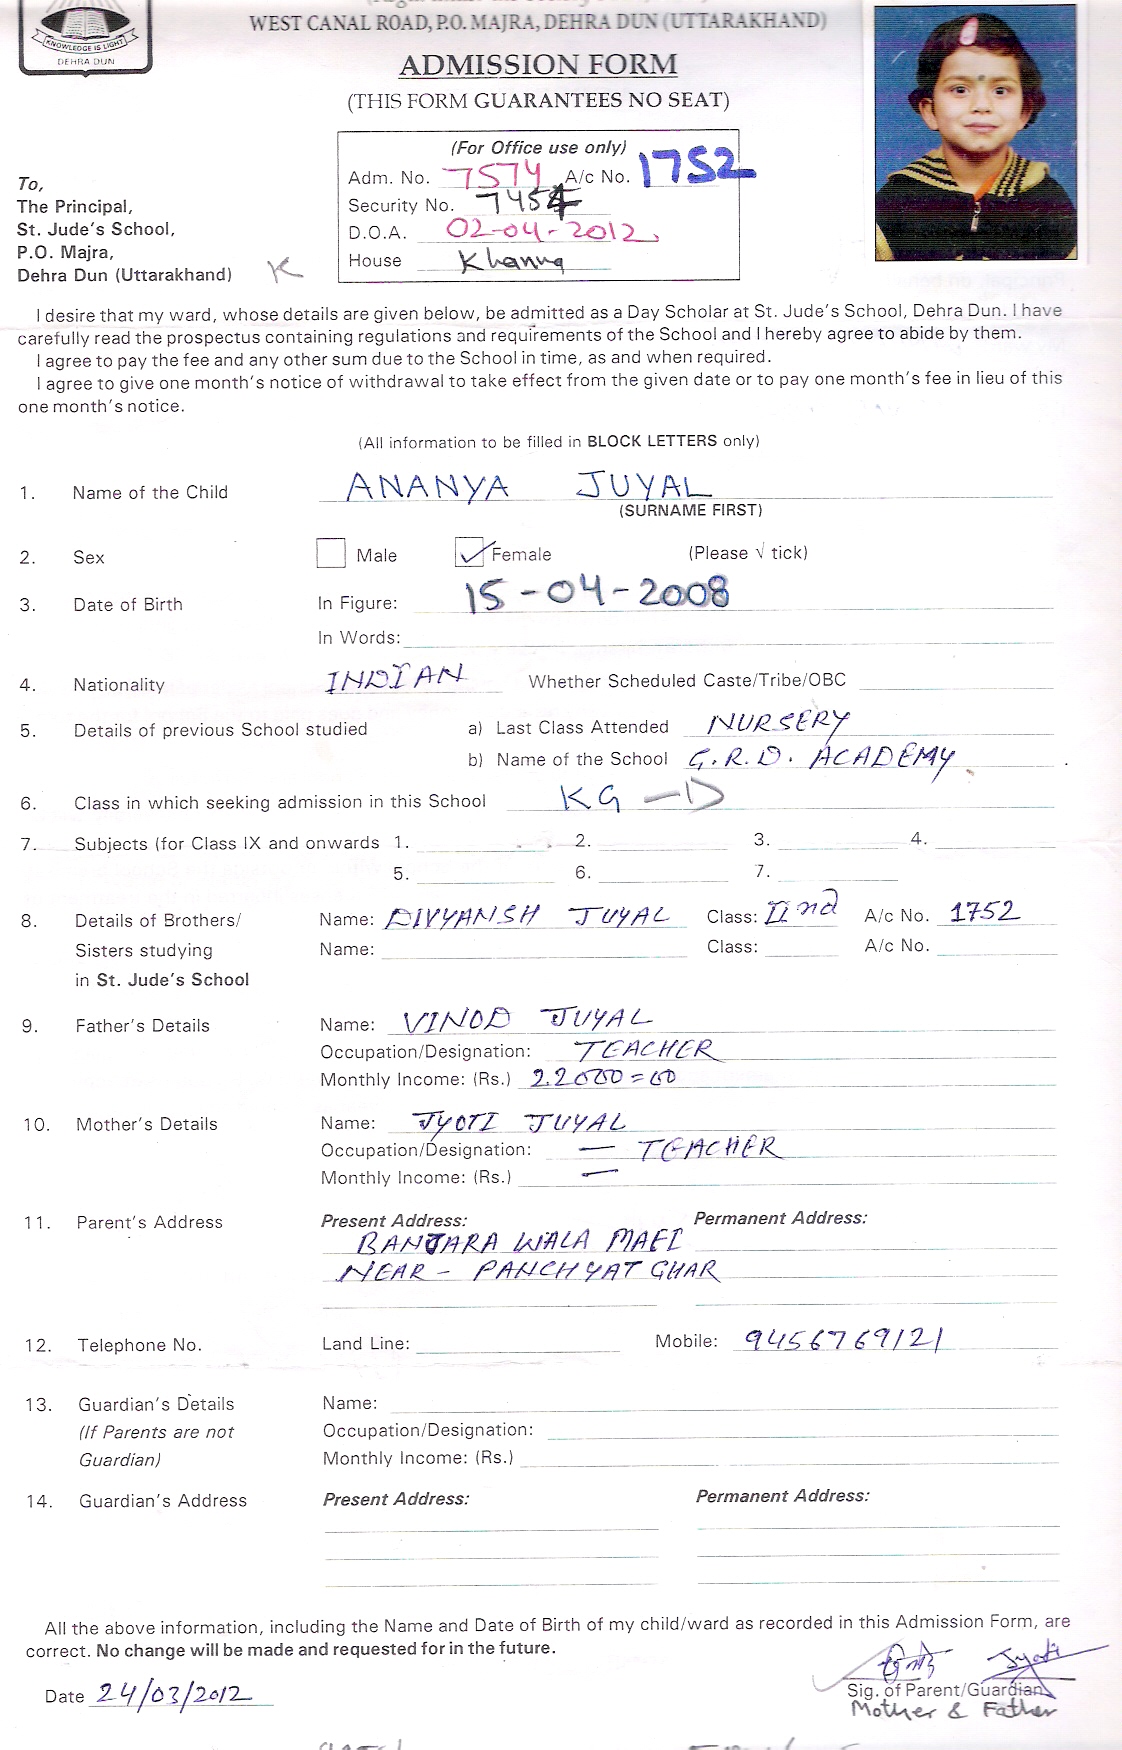 WEST CANAL ROAD, P.O. MAJRA, DEHRA DUN (UTTARAKHAND)
KNOWLEDGE IS LIGHT
DEHRA DUN
ADMISSION FORM
(THIS FORM GUARANTEES NO SEAT)
(For Office use only)
Adm. No. 7574 A/c No. 1752
Security No. 7454
D.O.A. 02-04-2012
House Khanna
To,
The Principal,
St. Jude's School,
P.O. Majra,
Dehra Dun (Uttarakhand) K
I desire that my ward, whose details are given below, be admitted as a Day Scholar at St. Jude's School, Dehra Dun. I have
carefully read the prospectus containing regulations and requirements of the School and I hereby agree to abide by them.
I agree to pay the fee and any other sum due to the School in time, as and when required.
I agree to give one month's notice of withdrawal to take effect from the given date or to pay one month's fee in lieu of this
one month's notice.
(All information to be filled in BLOCK LETTERS only)
1. Name of the Child ANANYA JUYAL
(SURNAME FIRST)
2. Sex Male Female (Please √ tick)
3. Date of Birth In Figure: 15-04-2008
In Words:
4. Nationality INDIAN Whether Scheduled Caste/Tribe/OBC
5. Details of previous School studied a) Last Class Attended NURSERY
b) Name of the School G.R.D. ACADEMY
6. Class in which seeking admission in this School KG - D
7. Subjects (for Class IX and onwards 1. 2. 3. 4.
5. 6. 7.
8. Details of Brothers/ Name: DIVYANSH JUYAL Class: IInd A/c No. 1752
Sisters studying Name: Class: A/c No.
in St. Jude's School
9. Father's Details Name: VINOD JUYAL
Occupation/Designation: TEACHER
Monthly Income: (Rs.) 22000=00
10. Mother's Details Name: JYOTI JUYAL
Occupation/Designation: — TEACHER
Monthly Income: (Rs.) —
11. Parent's Address Present Address: Permanent Address:
BANJARA WALA MAFI
NEAR - PANCHYAT GHAR
12. Telephone No. Land Line: Mobile: 9456769121
13. Guardian's Details Name:
(If Parents are not Occupation/Designation:
Guardian) Monthly Income: (Rs.)
14. Guardian's Address Present Address: Permanent Address:
All the above information, including the Name and Date of Birth of my child/ward as recorded in this Admission Form, are
correct. No change will be made and requested for in the future.
Jyoti
Date 24/03/2012 Sig. of Parent/Guardian
Mother & Father